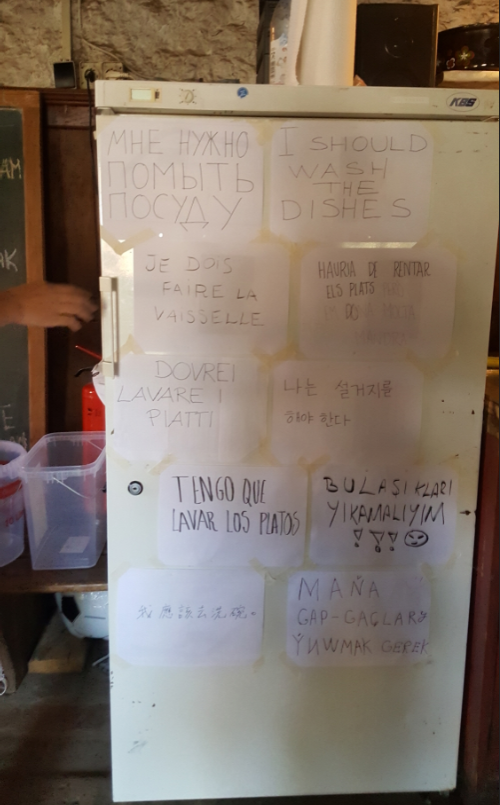 AM
AK
E
KBS
МНЕ НУЖНО
ПОМЫТЬ
ПОСУДУ
I SHOULD
WASH
THE
DISHES
JE DOIS
FAIRE LA
VAISSELLE
HAURIA DE RENTAR
ELS PLATS
DOVREI
LAVARE I
PIATTI
나는 설거지를
해야 한다
TENGO QUE
LAVAR LOS PLATOS
BULAŞIKLARI
YIKAMALIYIM
!!!
我應該去洗碗。
MAŇA
GAP-GAÇLARY
ÝUWMAK GEREK